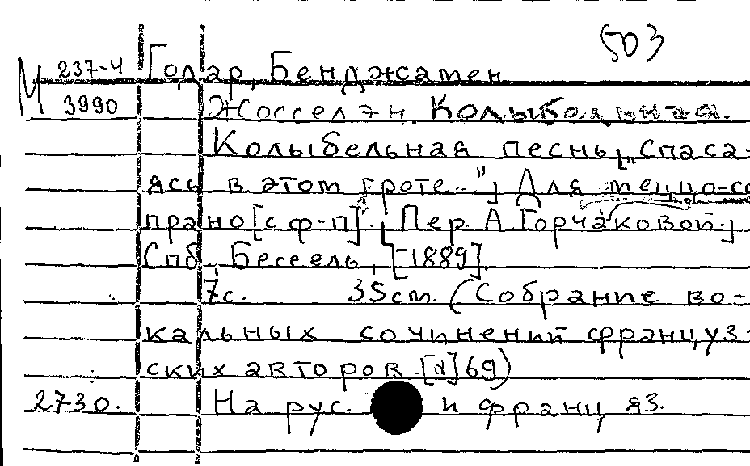 503
М 237-4 Годар, Бенджамен
3990 Жосселэн. Колыбельная.
Колыбельная песнь „Спаса-
ясь в этом гроте..." Для меццо-со
прано [с ф-п]. Пер. А. Горчаковой.
Спб., Бессель, [1889].
7с. 35см. (Собрание во-
кальных сочинений француз-
ских авторов. [№]69)
2730. На рус. и франц яз.